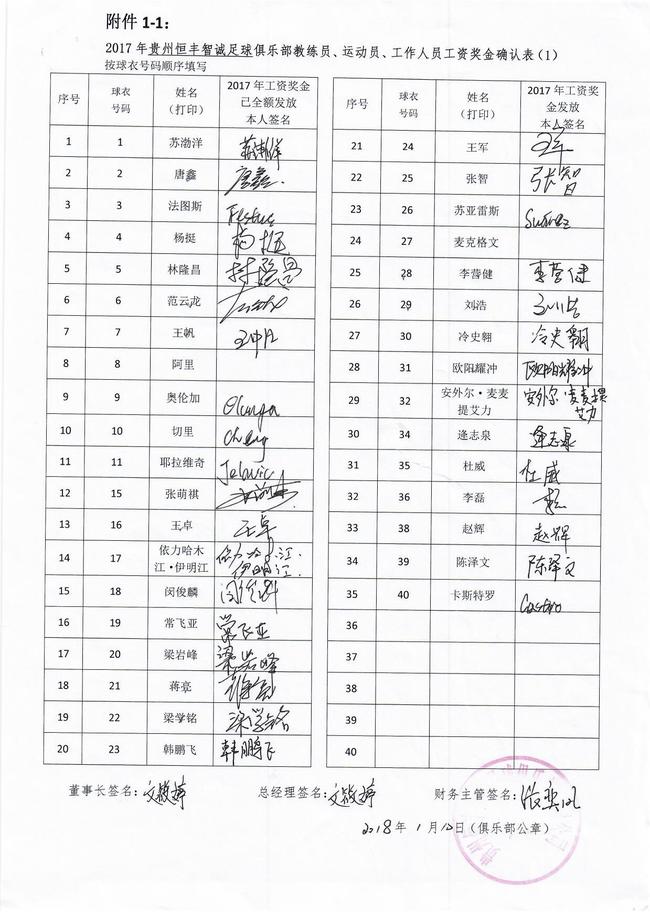 附件 1-1：
2017 年贵州恒丰智诚足球俱乐部教练员、运动员、工作人员工资奖金确认表（1）
按球衣号码顺序填写
序号 球衣号码 姓名（打印） 2017 年工资奖金已全额发放本人签名
1 1 苏渤洋
2 2 唐鑫 唐鑫
3 3 法图斯
4 4 杨挺 杨挺
5 5 林隆昌 林隆昌
6 6 范云龙
7 7 王帆
8 8 阿里
9 9 奥伦加
10 10 切里
11 11 耶拉维奇 Jelavic
12 15 张萌祺
13 16 王卓 王卓
14 17 依力哈木江·伊明江 依力哈木江·伊明江
15 18 闵俊麟
16 19 常飞亚 常飞亚
17 20 梁岩峰 梁岩峰
18 21 蒋亮
19 22 梁学铭 梁学铭
20 23 韩鹏飞 韩鹏飞
序号 球衣号码 姓名（打印） 2017 年工资奖金发放本人签名
21 24 王军
22 25 张智 张智
23 26 苏亚雷斯 Suárez
24 27 麦克格文
25 28 李营健 李营健
26 29 刘浩
27 30 冷史翱 冷史翱
28 31 欧阳耀冲 欧阳耀冲
29 32 安外尔·麦麦提艾力 安外尔·麦麦提艾力
30 34 逄志泉 逄志泉
31 35 杜威 杜威
32 36 李磊
33 38 赵辉 赵辉
34 39 陈泽文 陈泽文
35 40 卡斯特罗 Castro
36
37
38
39
40
董事长签名： 总经理签名： 财务主管签名：
2018 年 1 月 10 日（俱乐部公章）